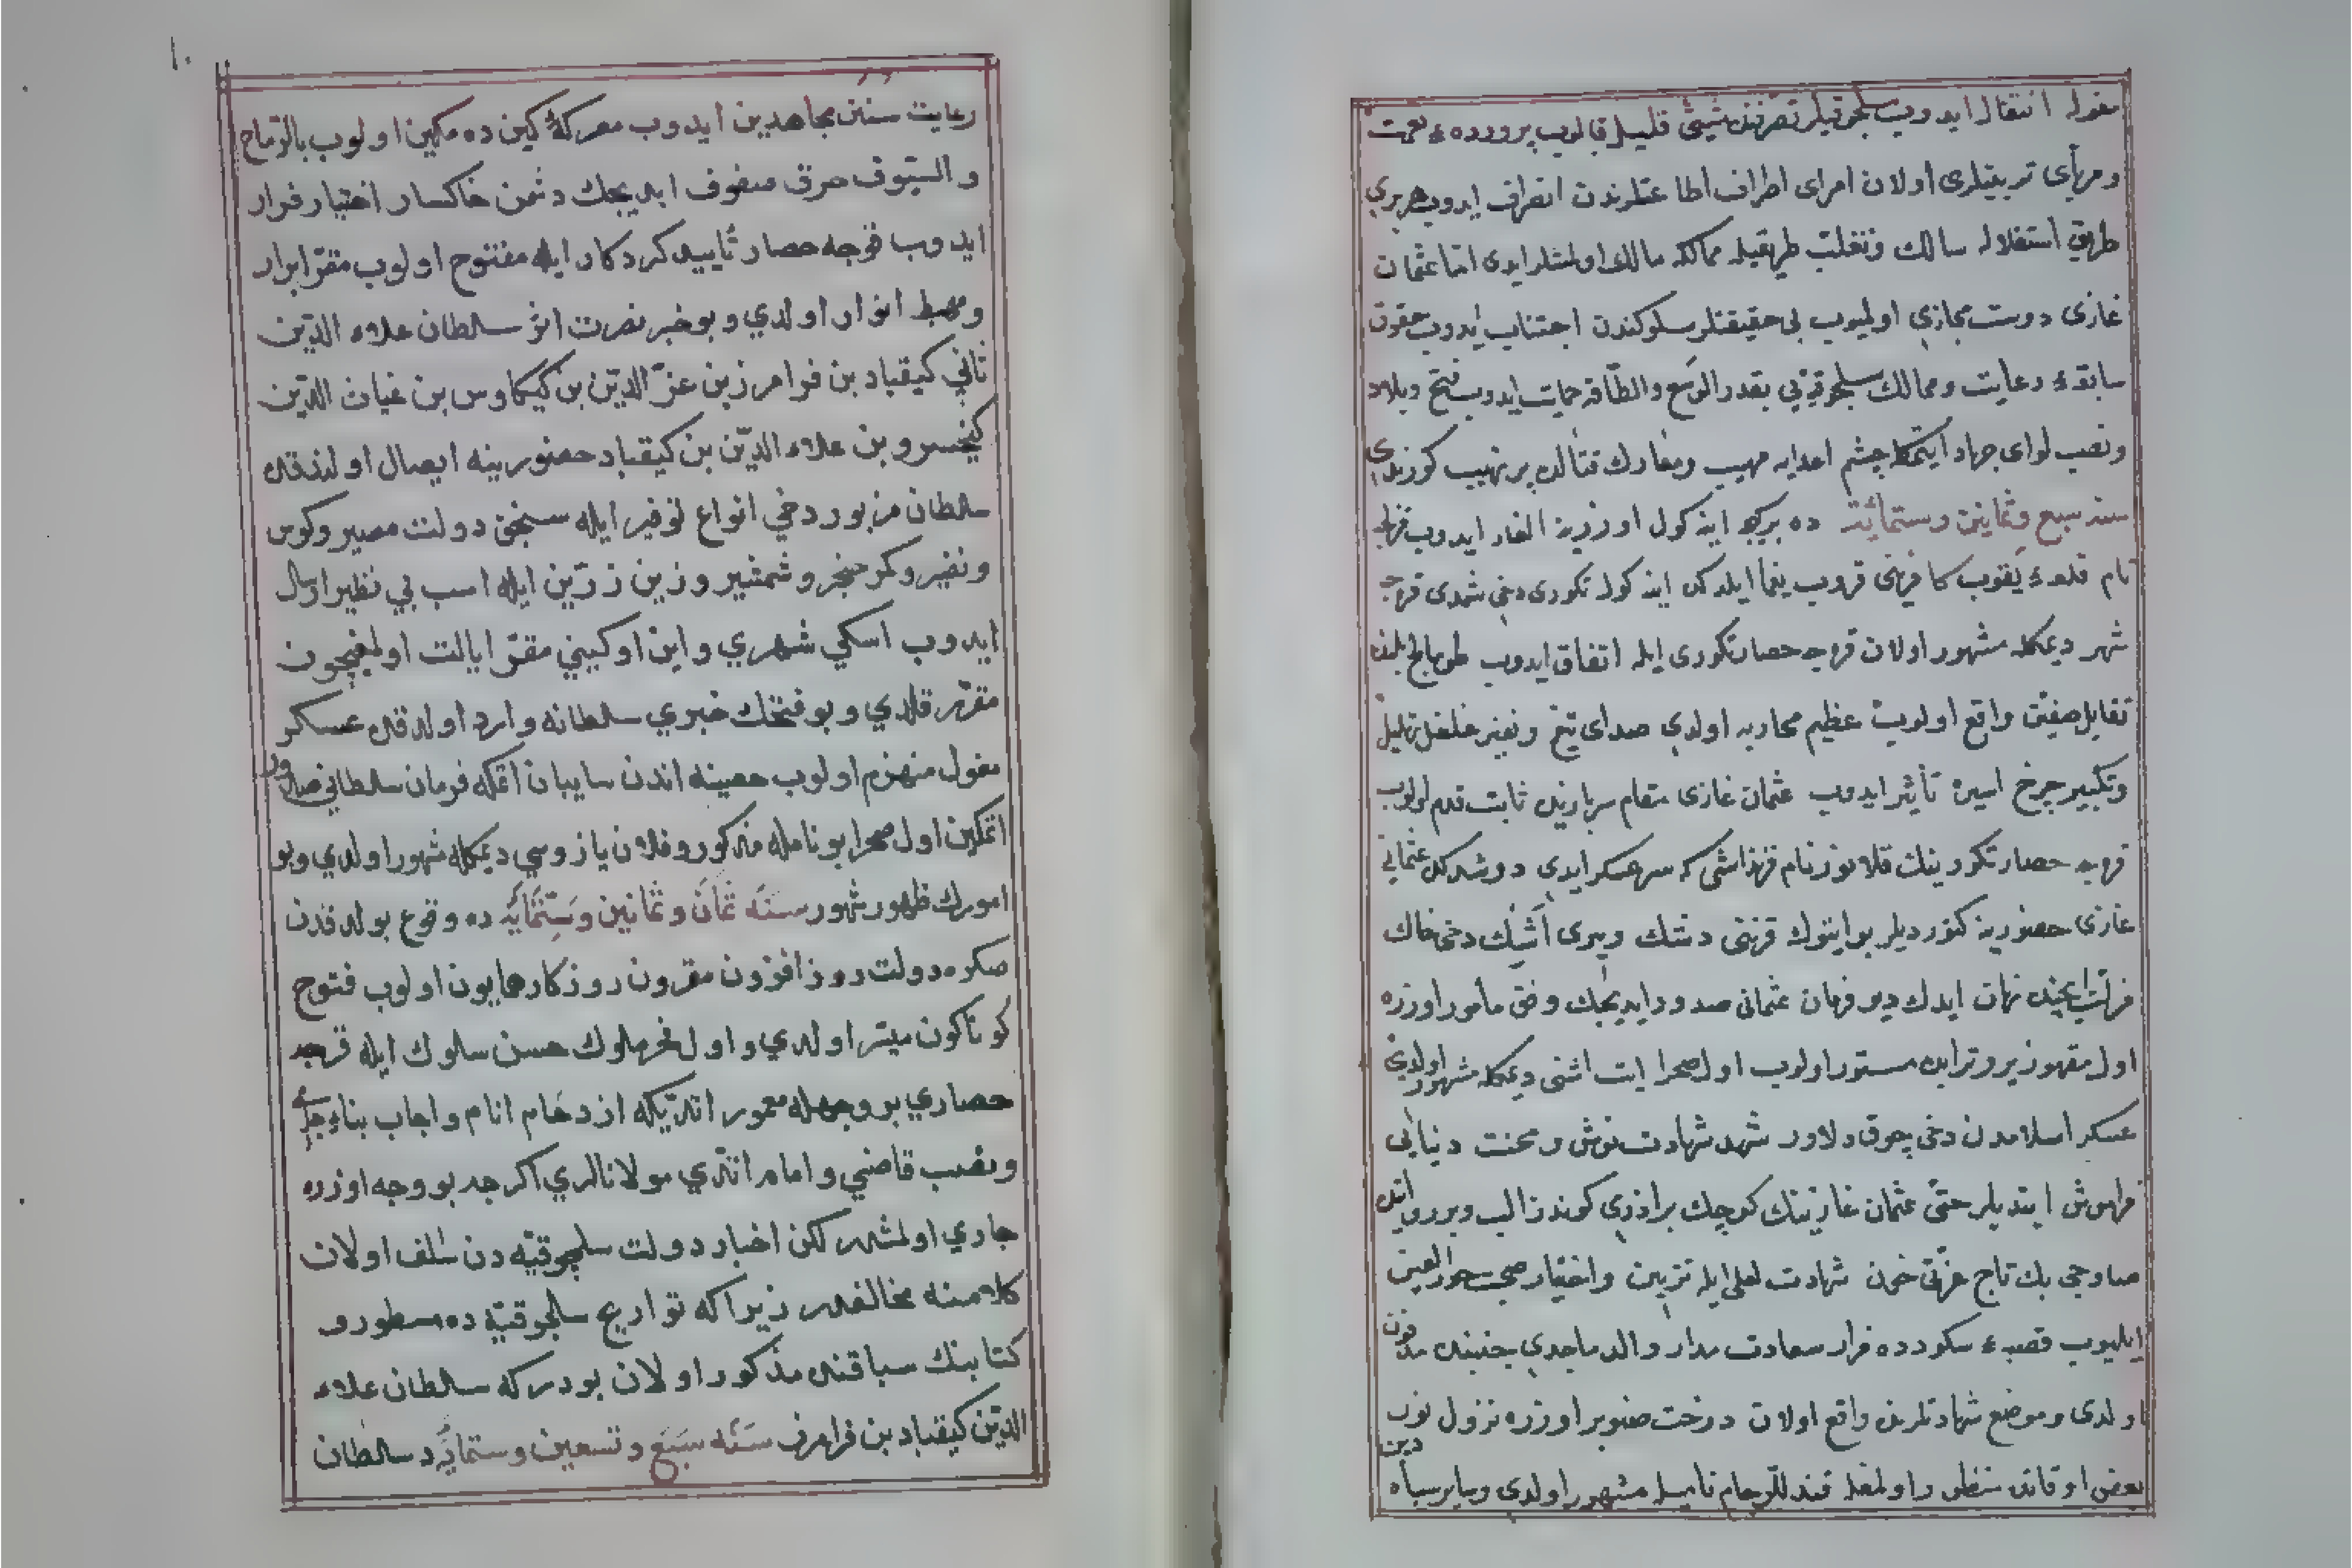 مغوله انتقال ايدوب سلجوقيلر تصرفنده شيئ قليل قالوب پرورده ء نعمت
ومربأى تربيتلرى اولان امراى اطراف اطاعتلرندن انصراف ايدوب هربرى
طريق استقلاله سالك وتغلب طريقيله ممالكه مالك اولمشلر ايدى اما عثمان
غازى دوست مجازى اولميوب بى حقيقتلر سلوكندن اجتناب ايدوب حقوق
سابقه ء رعايت وممالك سلجوقيه يى بقدر الوسع والطاقه حمايت ايدوب فتح وبلاد
ونصب لواى جهاد ايتمكله چشم اعدايه مهيب ومعارك قتالده پر نهيب كورندى
سنه سبع وثمانين وستمائه ده بركره اينه كول اوزرينه الغار ايدوب قولجه
نام قلعه ء يقوب كافرينى قروب يغما ايلدكده اينه كول تكورى دخى شمدى قرجه
شهر ديمكله مشهور اولان قرجه حصار تكورى ايله اتفاق ايدوب طومانج بلنده
تقابل صفين واقع اولوب عظيم محاربه اولدى صداى تيغ ونفير غلغل تهليل
وتكبير چرخ اسيره تأثير ايدوب عثمان غازى مقام سربازيده ثابت قدم اولوب
قرجه حصار تكورينك قلانوز نام قرنداشى كه سرعسكر ايدى دوشدكده عثمانى
غازى حضورينه كتورديلر بو ايتوك قرننى دشك ويرى اشيك دخى خاك
مذلت ايچنده نهان ايدك ديو فرمان عثمانى صدور ايديجك وفق مأمور اوزره
اول مقهور زير وترابده مستور اولوب اول صحرا ايت اشنى ديمكله مشهور اولدى
عسكر اسلامدن دخى چوق دلاور شهد شهادت نوش ومحنت دنيايى
فراموش ايتديلر حتى عثمان غازينك كوچك برادرى كوندز الب وبرروايتده
صاوجى بك تاج عزتن خون شهادت لعلى ايله تزيين واختيار صحبت حور العين
ايليوب قصبه ء سكودده مزار سعادت مدار والد ماجدى جنبنده مدفون
اولدى وموضع شهادتلرنده واقع اولان درخت صنوبر اوزره نزول نور
دين
بعض اوقاتده منظور اولمغله قنديللو جام ناميله مشهور اولدى وساير سپاه
١٠
رعايت سنن مجاهدين ايدوب معركهٔ كين ده مكين اولوب بالرماح
والسيوف خرق صفوف ايديجك دشمن خاكسار اختيار فرار
ايدوب قوجه حصار تأييد كردكار ايله مفتوح اولوب مقر ابرار
ومهبط انوار اولدي وبو خبر نصرت اثر سلطان علاء الدين
ثاني كيقباد بن فرامرز بن عز الدين بن كيكاوس بن غياث الدين
كيخسرو بن علاء الدين بن كيقباد حضورينه ايصال اولندقده
سلطان مزبور دخي انواع توفير ايله سنجق دولت مصير وكوس
ونفير وكمر خنجر وشمشير وزين زرين ايله اسب بي نظير ارسال
ايدوب اسكي شهري واين اوكيني مقر ايالت اولمغيچون
مقرر قلدي وبو فتحك خبري سلطانه وارد اولدقده عسكر
مغول منهزم اولوب حصينه اندن سايبان اتمكه فرمان سلطاني صادر
اتمكين اول صحرا بو نامله مذكور وفلان يازوسي ديمكله مشهور اولدي وبو
امورك ظهور شهور سنه ثمان وثمانين وستمائه ده وقوع بولدقدن
صكره دولت روز افزون مقرون روزكار همايون اولوب فتوح
كوناكون ميسر اولدي واول فخر ملوك حسن سلوك ايله قرجه
حصاري بر وجهله معمور اتديكه ازدحام انام واجاب بناء جوامع
ونصب قاضي وامام اتدي مولانا لري اكرچه بو وجه اوزره
جاري اولمشدر لكن اخبار دولت سلجوقيه دن سلف اولان
كلامنه مخالفدر زيراكه تواريخ سلجوقيه ده مسطور و
كتابنك سباقنده مذكور اولان بودركه سلطان علاء
الدين كيقباد بن فرامرز سنه سبع وتسعين وستمايه د سلطان